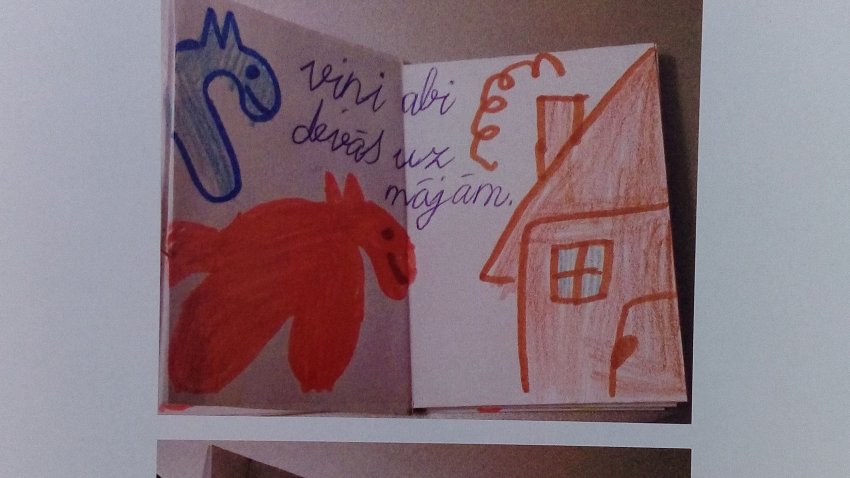 viņi abi
devās uz
mājām.